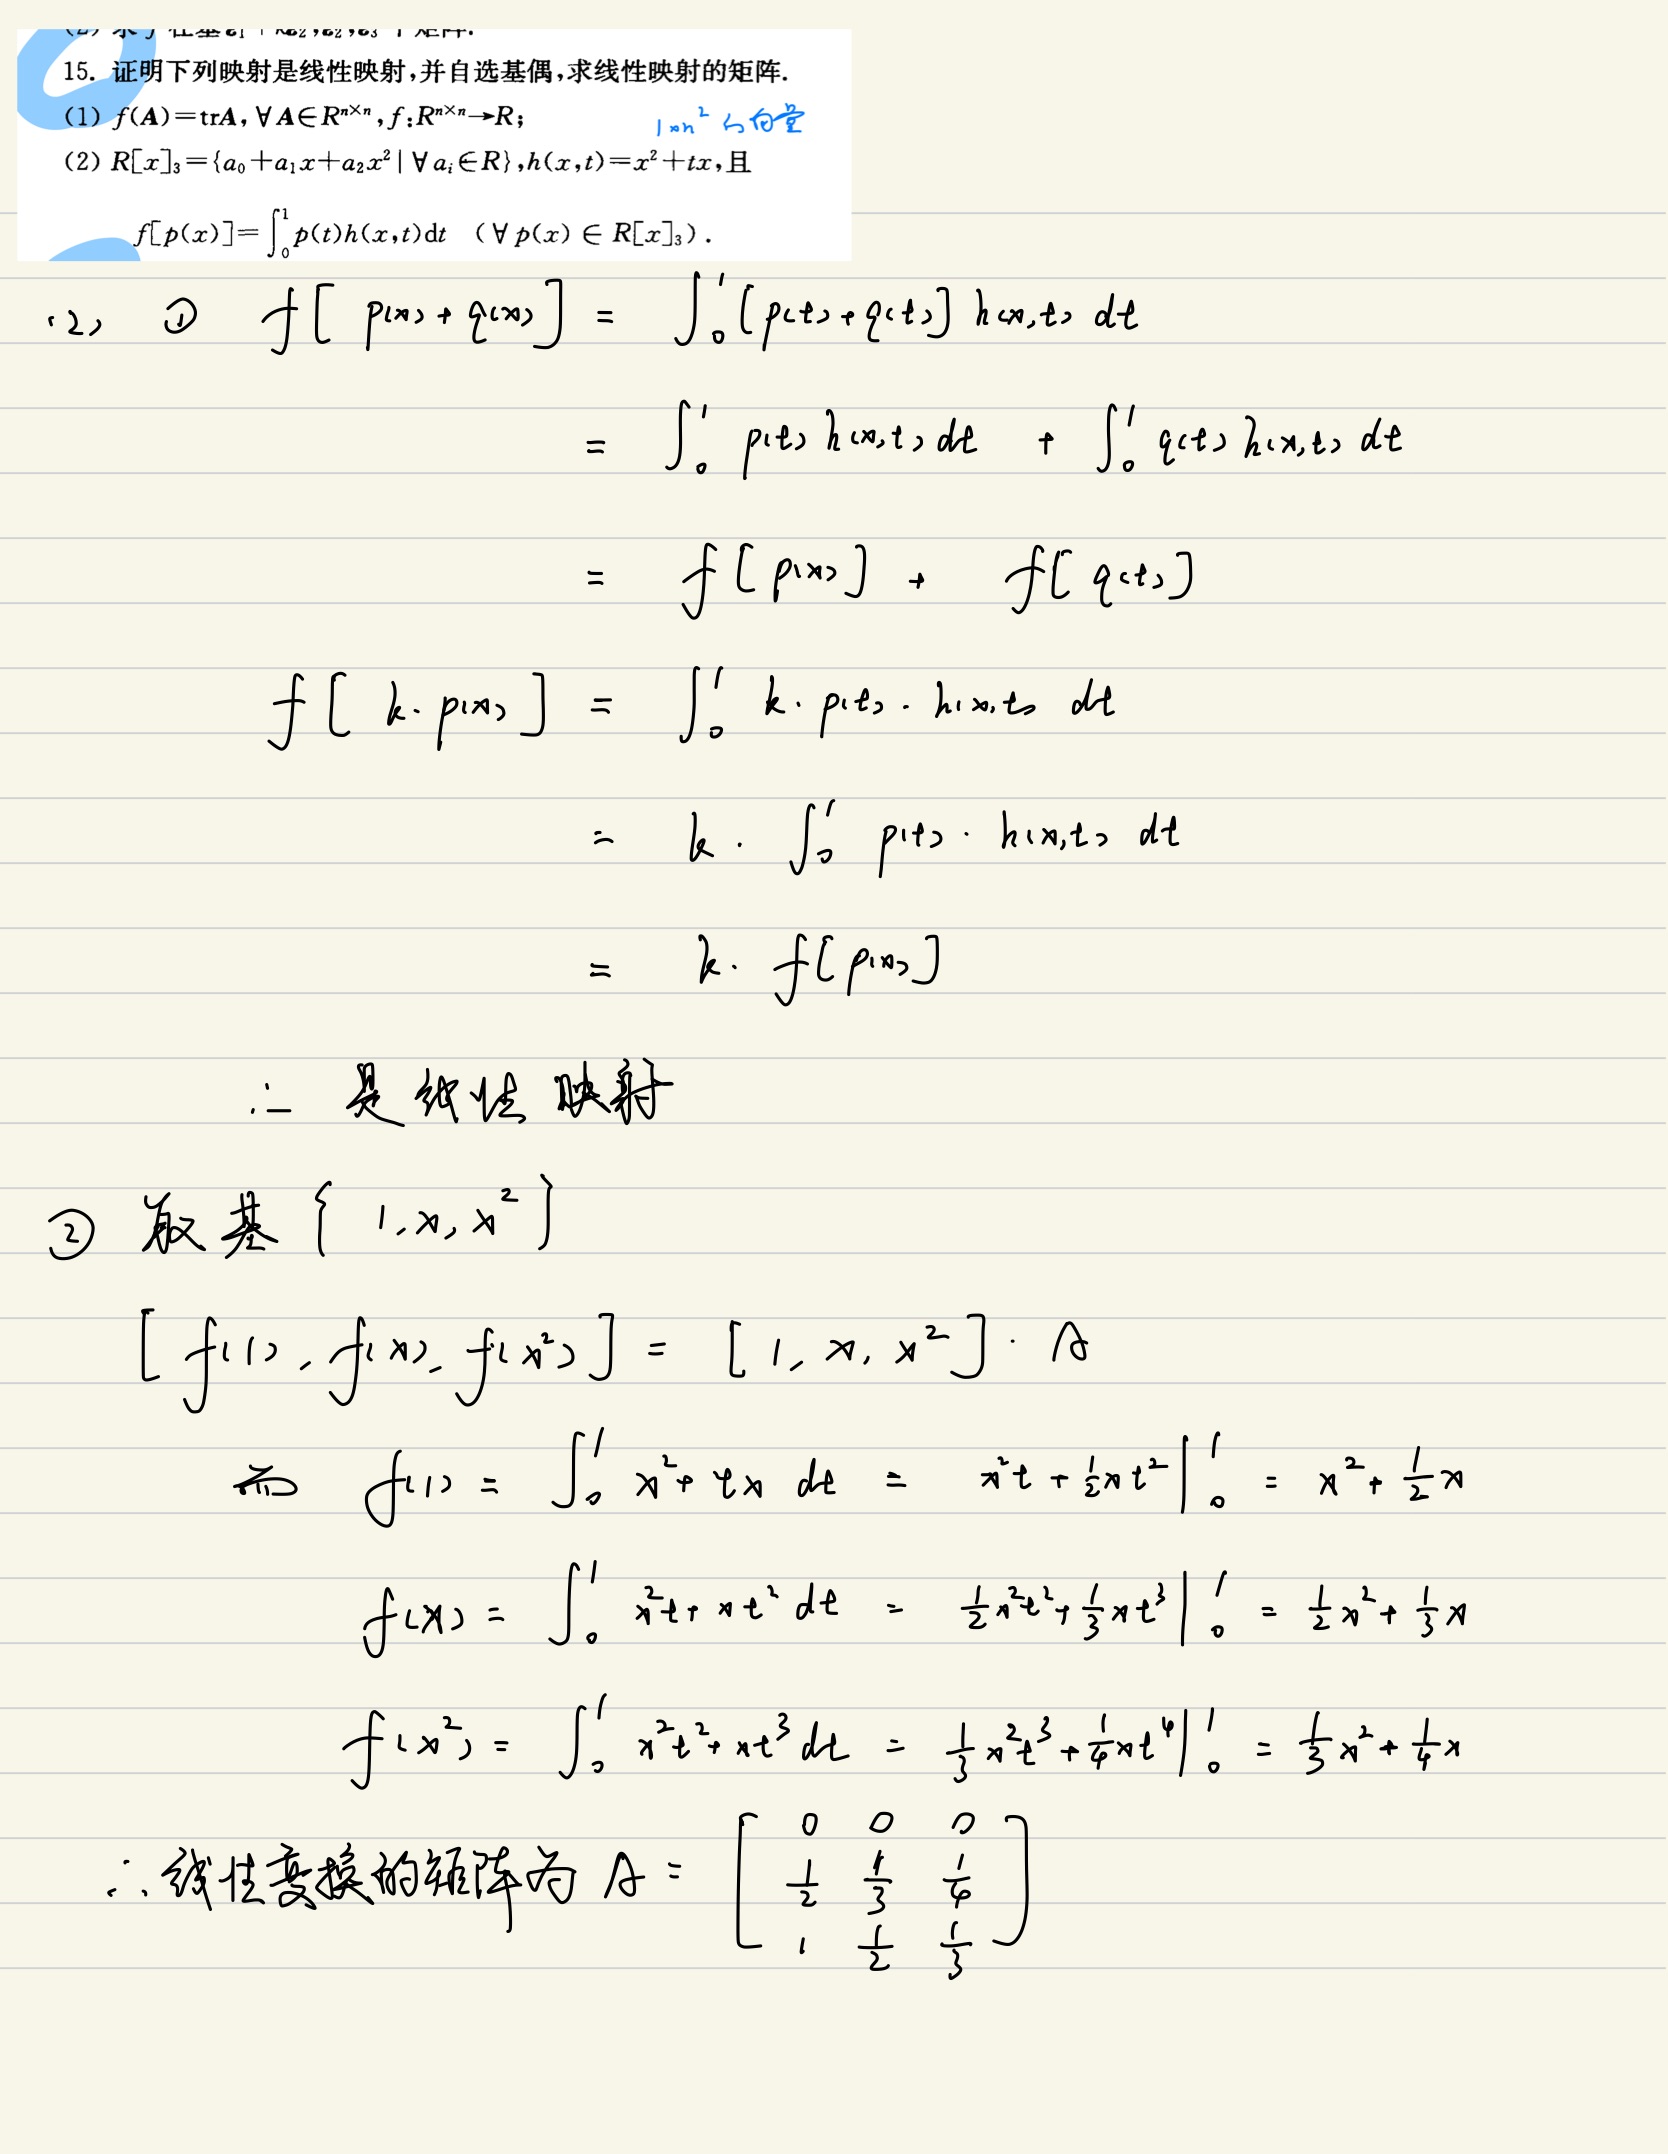 15. 证明下列映射是线性映射,并自选基偶,求线性映射的矩阵.
(1) f(A)=trA,∀A∈Rⁿˣⁿ,f:Rⁿˣⁿ→R;
1×n² 的向量
(2) R[x]₃={a₀+a₁x+a₂x²|∀aᵢ∈R},h(x,t)=x²+tx,且
f[p(x)]=∫₀¹p(t)h(x,t)dt (∀p(x)∈R[x]₃).
(2) ① f[p(x)+q(x)] = ∫₀¹[p(t)+q(t)]h(x,t)dt
= ∫₀¹ p(t)h(x,t)dt + ∫₀¹ q(t)h(x,t)dt
= f[p(x)] + f[q(t)]
f[k·p(x)] = ∫₀¹ k·p(t)·h(x,t) dt
= k·∫₀¹ p(t)·h(x,t) dt
= k·f[p(x)]
∴ 是线性映射
② 取基{1,x,x²}
[f(1),f(x),f(x²)] = [1,x,x²]·A
而 f(1) = ∫₀¹ x²+tx dt = x²t+½xt²|₀¹ = x²+½x
f(x) = ∫₀¹ x²t+xt² dt = ½x²t²+⅓xt³|₀¹ = ½x²+⅓x
f(x²) = ∫₀¹ x²t²+xt³dt = ⅓x²t³+¼xt⁴|₀¹ = ⅓x²+¼x
0 0 0
∴线性变换的矩阵为 A = ½ ⅓ ¼
1 ½ ⅓